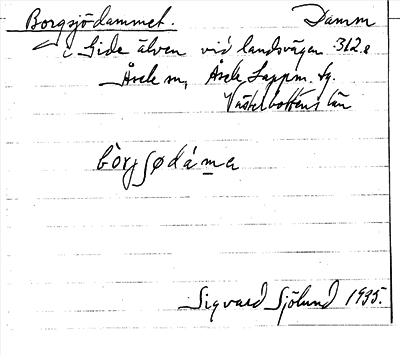 Borgsjödammet. Damm
i Gide älven vid landsvägen 312.
Åsele sn, Åsele Lappm. tg.
Västerbottens län
bòrjʃødáma
Sigvard Sjölund 1935.